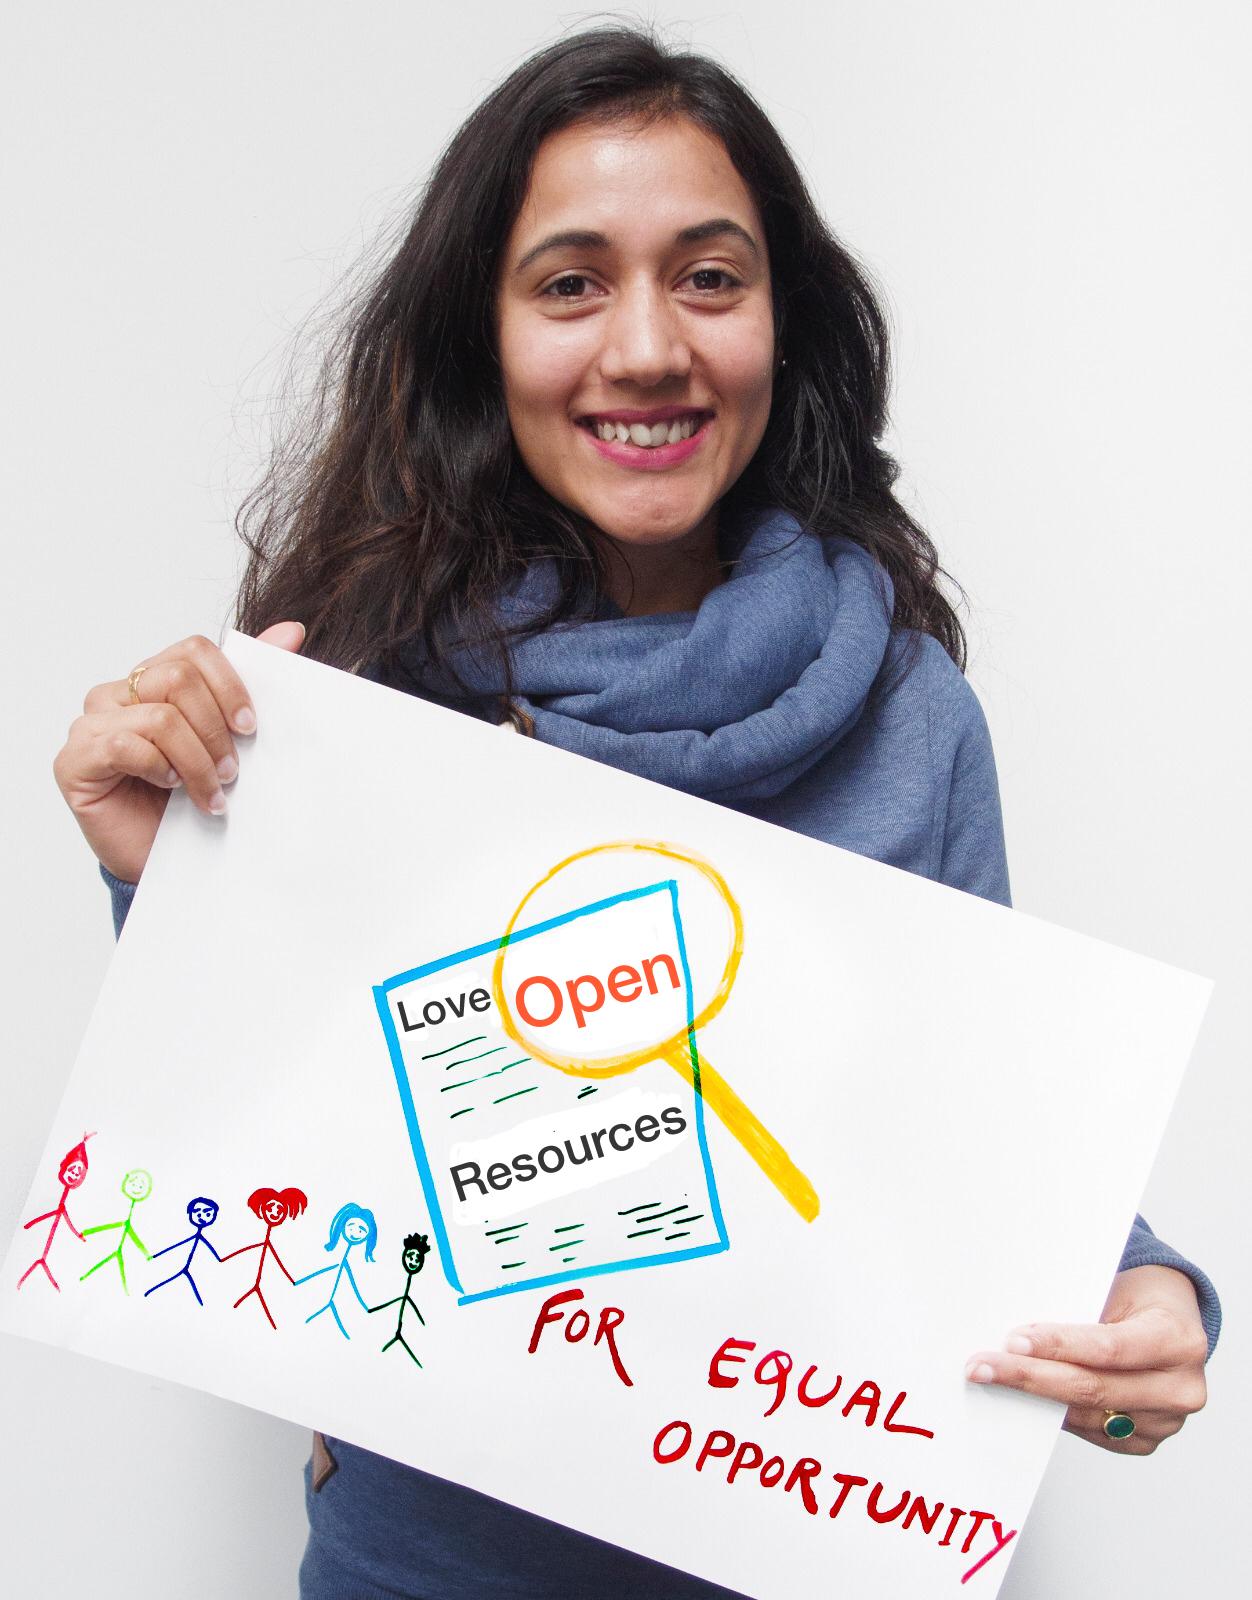 Love Open
Resources
FOR EQUAL
OPPORTUNITY